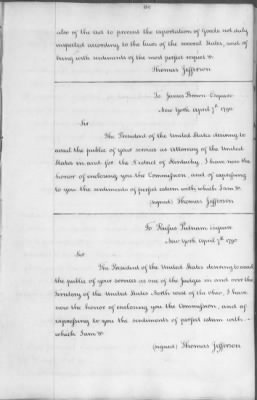 also of the Act to prevent the exportation of Goods not duly
inspected according to the laws of the several States, and of
being with sentiments of the most perfect respect &c
Thomas Jefferson
To James Brown Esquire
New York April 7th 1790
Sir
The President of the United States desiring to
avail the public of your services as Attorney of the United
States in and for the District of Kentucky, I have now the
honor of enclosing you the Commission, and of expressing
to you the sentiments of perfect esteem with which I am &c
(signed) Thomas Jefferson
To Rufus Putnam esquire
New York April 7th 1790
Sir
The President of the United States desiring to avail
the public of your services as one of the Judges in and over the
Territory of the United States North west of the Ohio, I have
now the honor of enclosing you the Commission, and of
expressing to you the sentiments of perfect esteem with
which I am &c
(signed) Thomas Jefferson